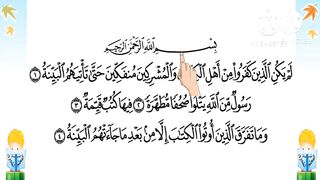 بِسْمِ اللَّهِ الرَّحْمَٰنِ الرَّحِيمِ
لَمْ يَكُنِ الَّذِينَ كَفَرُوا مِنْ أَهْلِ الْكِتَابِ وَالْمُشْرِكِينَ مُنفَكِّينَ حَتَّىٰ تَأْتِيَهُمُ الْبَيِّنَةُ ١
رَسُولٌ مِّنَ اللَّهِ يَتْلُو صُحُفًا مُّطَهَّرَةً ٢ فِيهَا كُتُبٌ قَيِّمَةٌ ٣
وَمَا تَفَرَّقَ الَّذِينَ أُوتُوا الْكِتَابَ إِلَّا مِن بَعْدِ مَا جَاءَتْهُمُ الْبَيِّنَةُ ٤